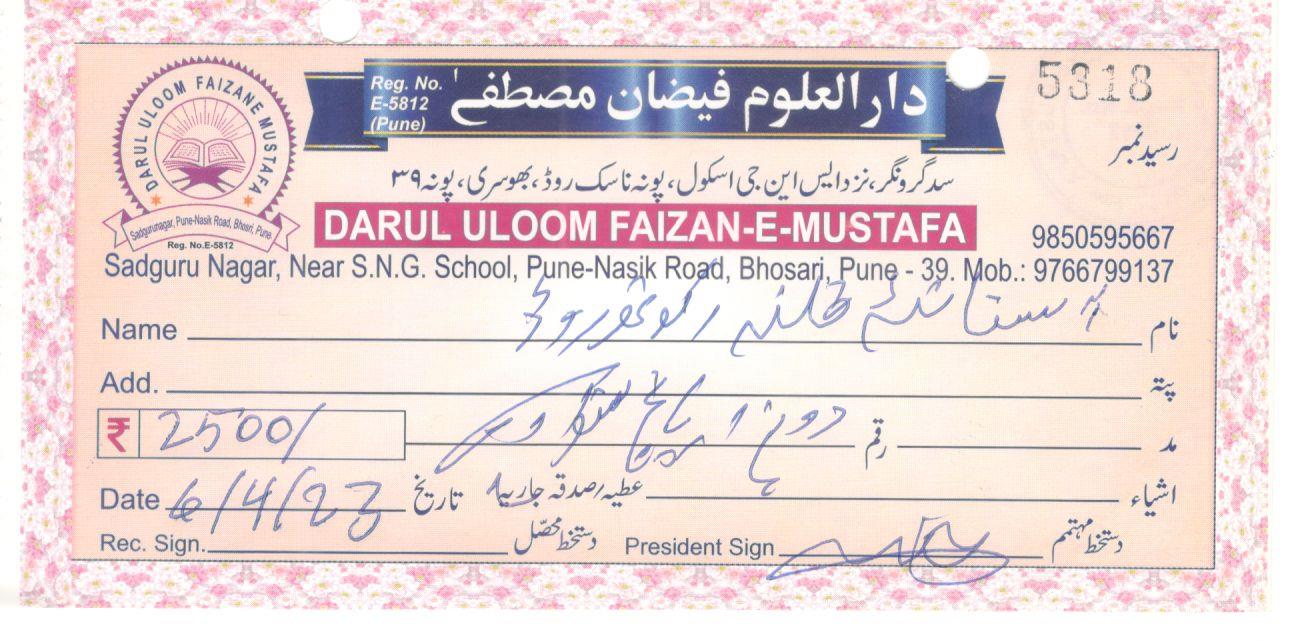 DARUL ULOOM FAIZANE MUSTAFA
Sadgurunagar, Pune-Nasik Road, Bhosri, Pune.
Reg. No.E-5812
Reg. No. E-5812 (Pune)
دارالعلوم فیضان مصطفےٰ
5318
رسید نمبر
سدگرونگر، نزد ایس این جی اسکول، پونہ ناسک روڈ، بھوسری، پونہ ۳۹
DARUL ULOOM FAIZAN-E-MUSTAFA
9850595667
Sadguru Nagar, Near S.N.G. School, Pune-Nasik Road, Bhosari, Pune - 39. Mob.: 9766799137
Name نام
Add. پتہ
₹ 2500/ دو ہزار پانچ سو روپے رقم مد
Date 6/4/23 تاریخ عطیہ/صدقہ جاریہ اشیاء
Rec. Sign. دستخط محصّل President Sign دستخط مہتمم